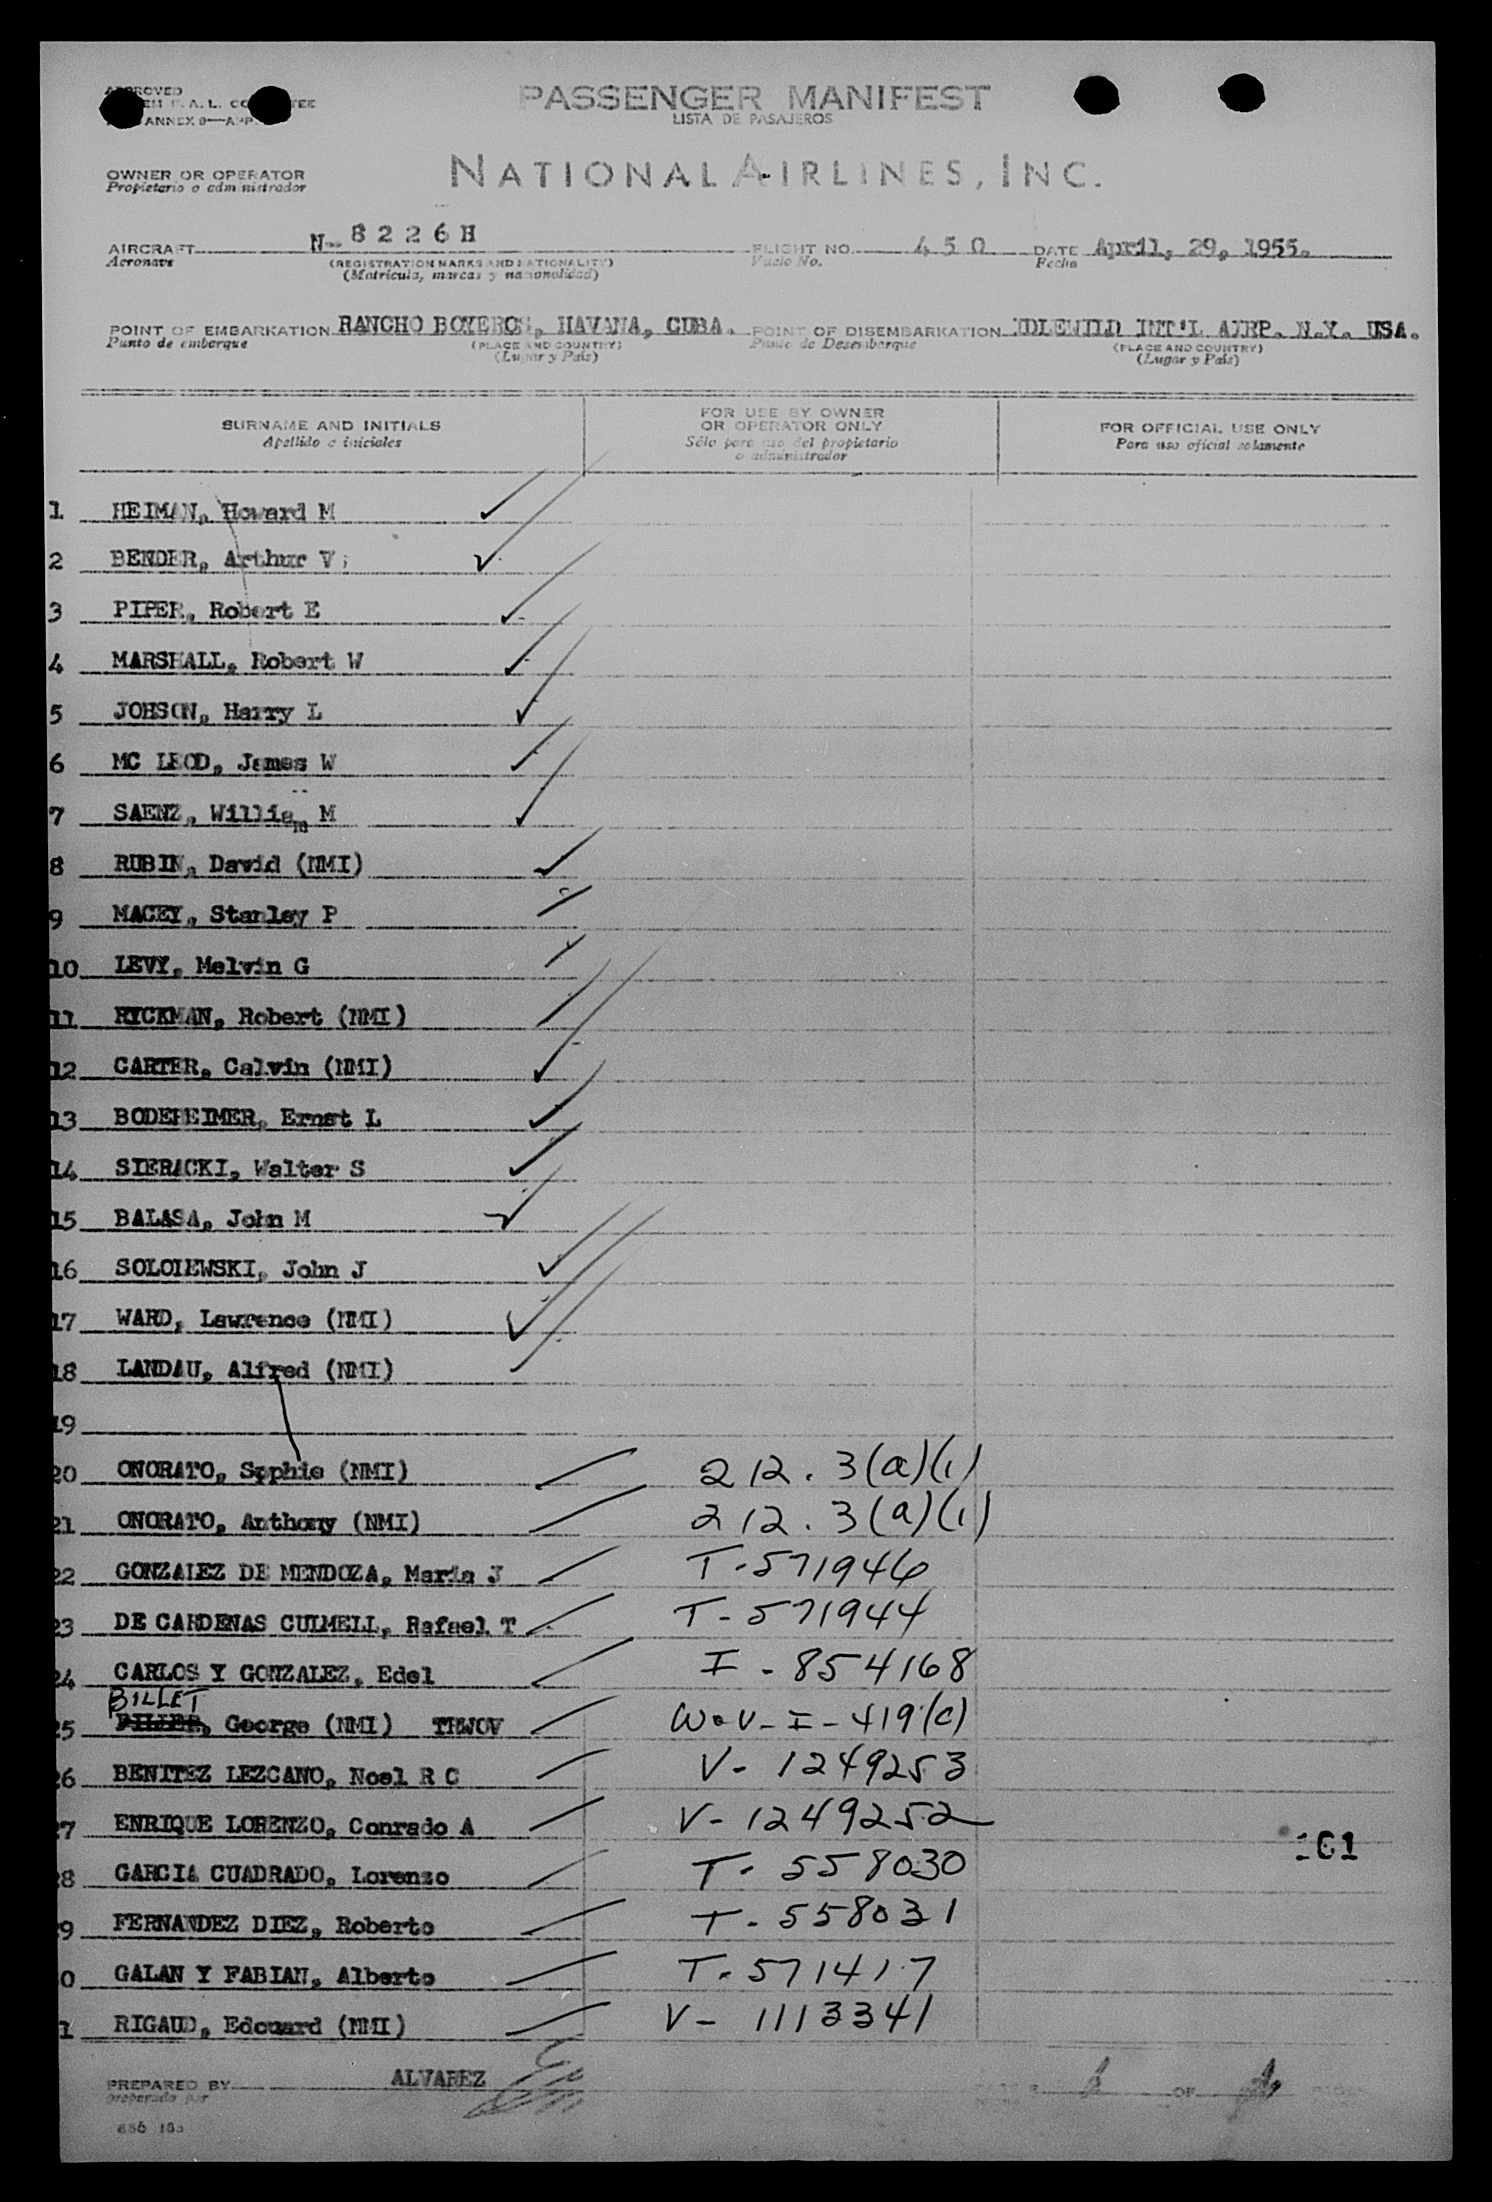 PASSENGER MANIFEST
LISTA DE PASAJEROS
ANNEX 9—APP.
OWNER OR OPERATOR
Propietario o administrador
NATIONAL AIRLINES, INC.
AIRCRAFT N- 8226H FLIGHT NO. 450 DATE April, 29, 1955.
Aeronave (REGISTRATION MARKS AND NATIONALITY) Vuelo No. Fecha
(Matricula, marcas y nacionalidad)
POINT OF EMBARKATION RANCHO BOYEROS, HAVANA, CUBA. POINT OF DISEMBARKATION IDLEWILD INT'L AIRP. N.Y. USA.
Punto de embarque (PLACE AND COUNTRY) Punto de Desembarque (PLACE AND COUNTRY)
(Lugar y País) (Lugar y País)
SURNAME AND INITIALS
Apellido e iniciales
FOR USE BY OWNER
OR OPERATOR ONLY
Sólo para uso del propietario
o administrador
FOR OFFICIAL USE ONLY
Para uso oficial solamente
1 HEIMAN, Howard M
2 BENDER, Arthur V
3 PIPER, Robert E
4 MARSHALL, Robert W
5 JOHSON, Harry L
6 MC LEOD, James W
7 SAENZ, William M
8 RUBIN, David (NMI)
9 MACEY, Stanley P
10 LEVY, Melvin G
11 RYCKMAN, Robert (NMI)
12 CARTER, Calvin (NMI)
13 BODEHEIMER, Ernst L
14 SIERACKI, Walter S
15 BALASA, John M
16 SOLOIEWSKI, John J
17 WARD, Lawrence (NMI)
18 LANDAU, Alfred (NMI)
19
20 ONORATO, Sophie (NMI) 212.3(a)(1)
21 ONORATO, Anthony (NMI) 212.3(a)(1)
22 GONZALEZ DE MENDOZA, Maria J T-571946
23 DE CARDENAS CULMELL, Rafael T T-571944
24 CARLOS Y GONZALEZ, Edel I-854168
BILLET
5 George (NMI) TRWOV W.V-I-419(c)
6 BENITEZ LEZCANO, Noel R C V-1249253
7 ENRIQUE LORENZO, Conrado A V-1249252
8 GARCIA CUADRADO, Lorenzo T-558030
161
9 FERNANDEZ DIEZ, Roberto T-558031
0 GALAN Y FABIAN, Alberto T-571417
1 RIGAUD, Edouard (NMI) V-1113341
PREPARED BY ALVAREZ
preparado por OF